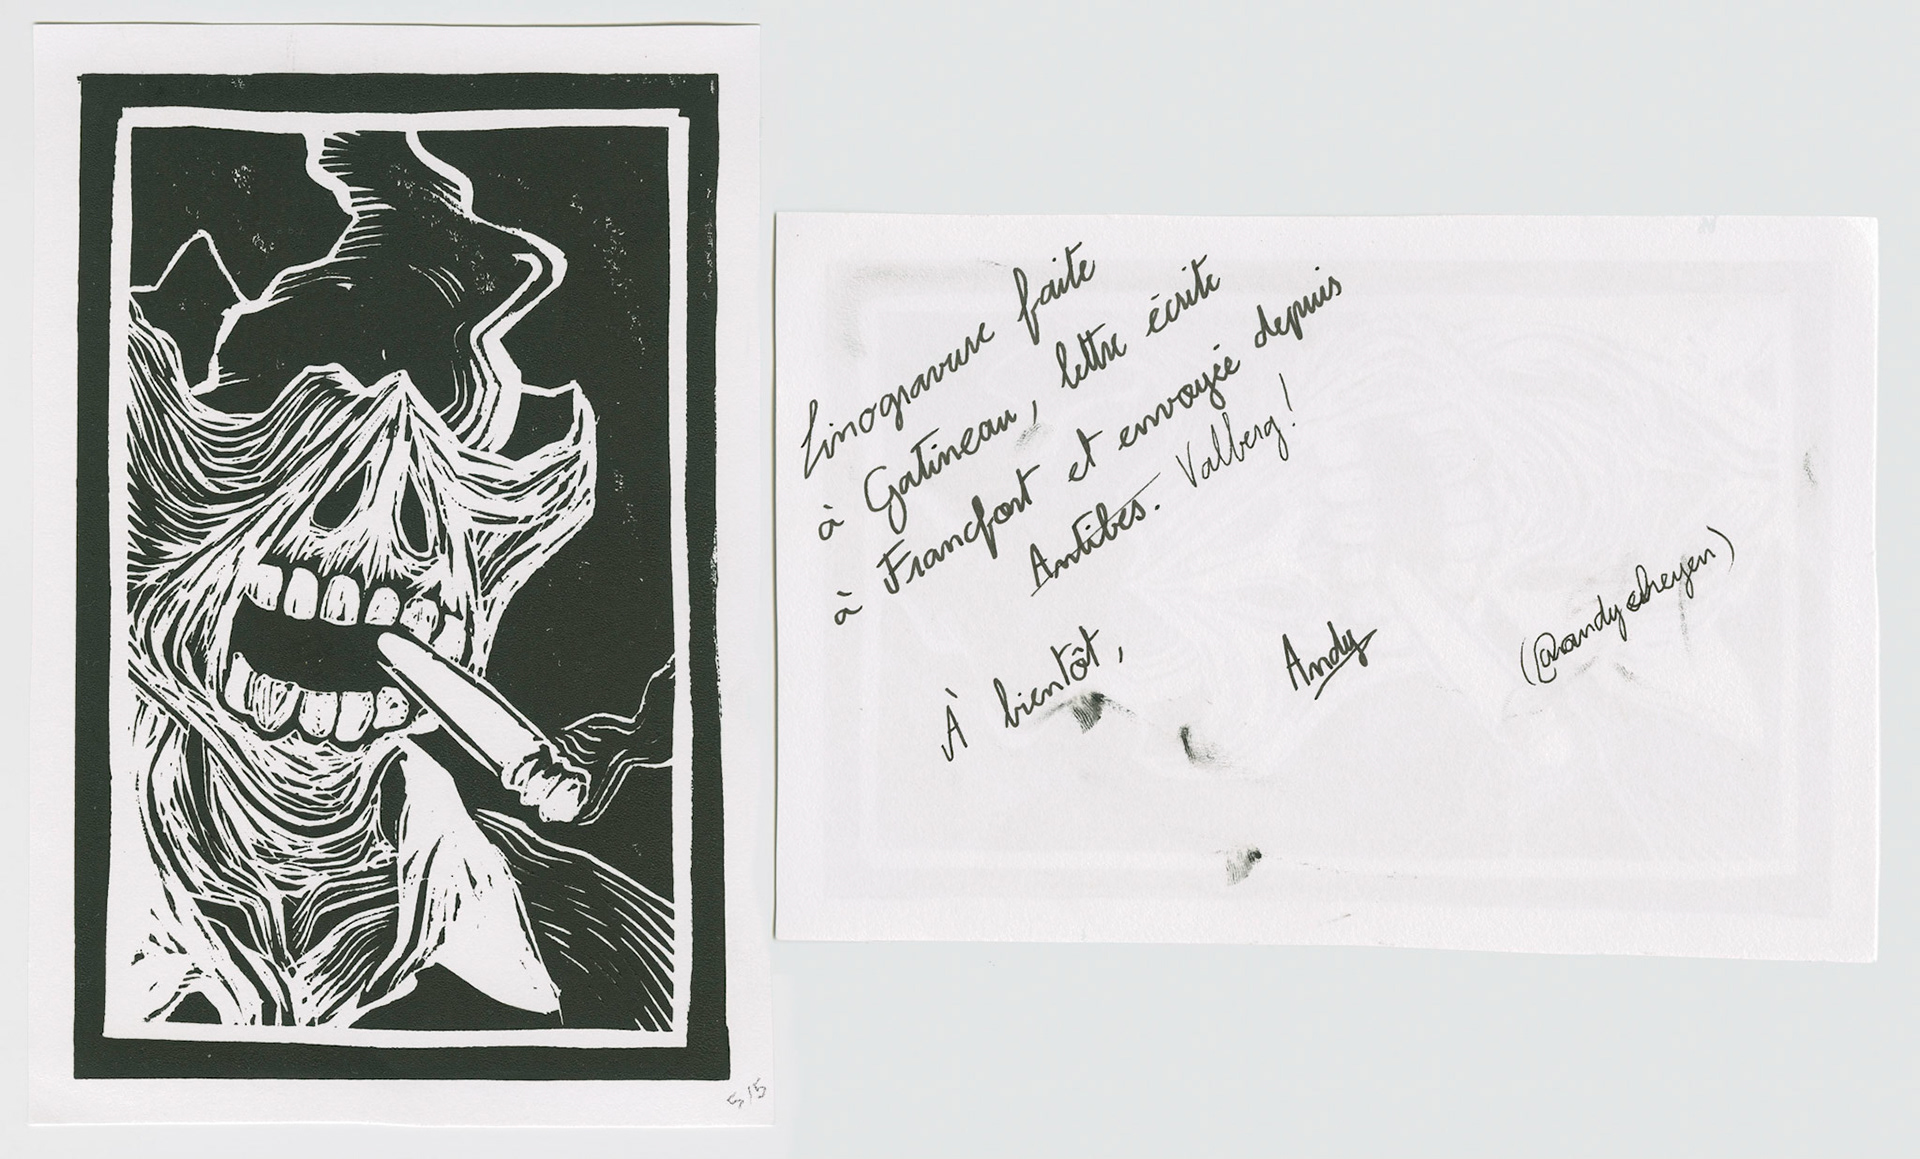 5/5
Linogravure faite
à Gatineau, lettre écrite
à Francfort et envoyée depuis
Antibes. Valberg!
À bientôt,
Andy
(@andycheyen)